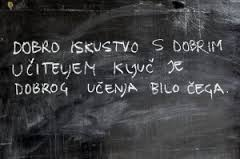 DOBRO ISKUSTVO S DOBRIM
UČITELJEM KLJUČ JE
DOBROG UČENJA BILO ČEGA.